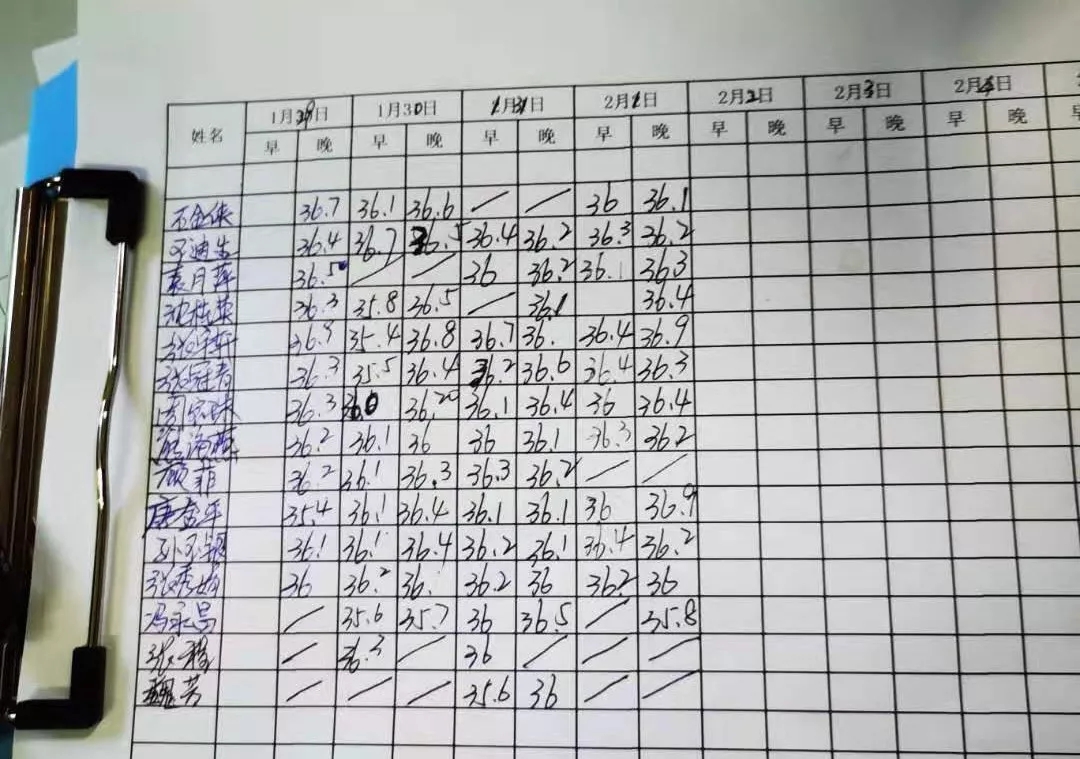 姓名 1月29日 1月30日 1月31日 2月1日 2月2日 2月3日 2月4日
早 晚 早 晚 早 晚 早 晚 早 晚 早 晚 早 晚 早
36.7 36.1 36.6 / / 36 36.1
36.4 36.7 36.5 36.4 36.2 36.3 36.2
袁月萍 36.5 / / 36 36.2 36.1 36.3
沈桂英 36.3 35.8 36.5 / 36.1 36.4
35.4 36.8 36.7 36. 36.4 36.9
36.3 35.5 36.4 36.2 36.6 36.4 36.3
36.3 36.0 36.20 36.1 36.4 36 36.4
36.2 36.1 36 36 36.1 36.3 36.2
顾菲 36.2 36.1 36.3 36.3 36.2 / /
35.4 36.1 36.4 36.1 36.1 36 36.9
36.1 36.1 36.4 36.2 36.1 36.4 36.2
36 36.2 36. 36.2 36 36.2 36
冯永昌 / 35.6 35.7 36 36.5 / 35.8
/ 36.3 / 36 / / /
魏芳 / / / 35.6 36 / /